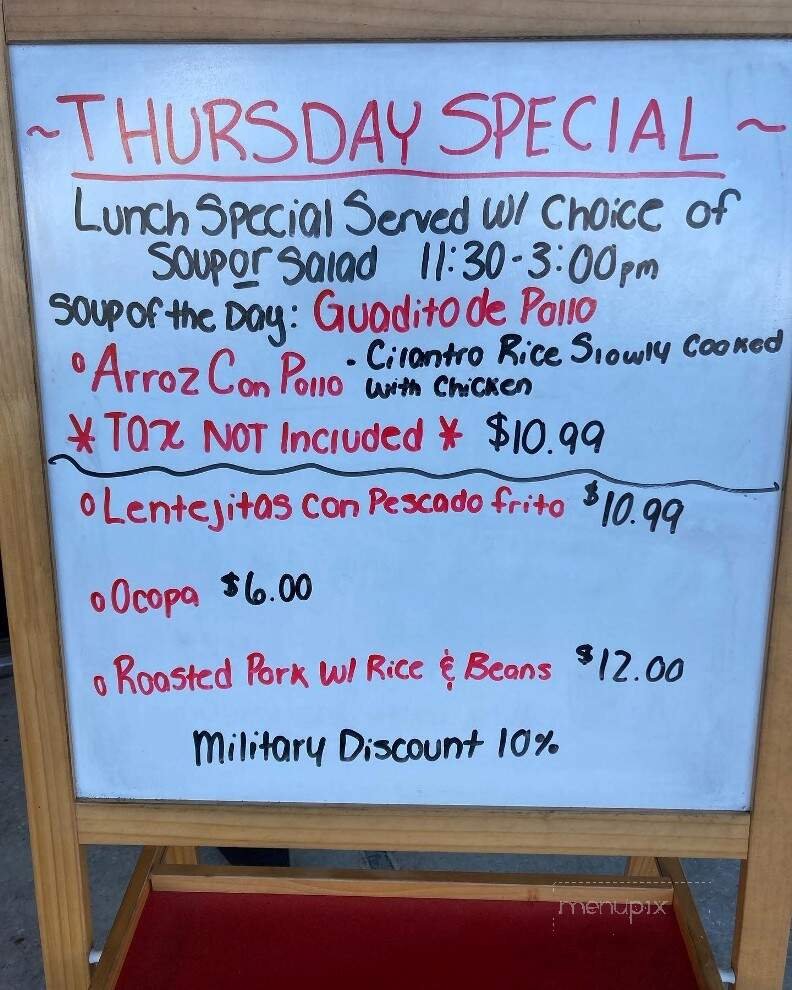 ~THURSDAY SPECIAL~
Lunch Special Served W/ Choice of
Soup or Salad 11:30-3:00pm
Soup of the Day: Guadito de Pollo
o Arroz Con Pollo - Cilantro Rice Slowly Cooked
with Chicken
* Tax NOT Included * $10.99
o Lentejitas con Pescado frito $10.99
o Ocopa $6.00
o Roasted Pork W/ Rice & Beans $12.00
Military Discount 10%
menupix